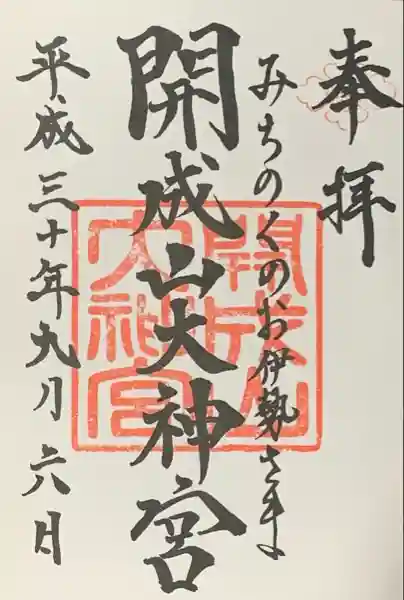 奉拝
みちのくのお伊勢さま
開成山大神宮
平成三十年九月六日
開成山
大神宮